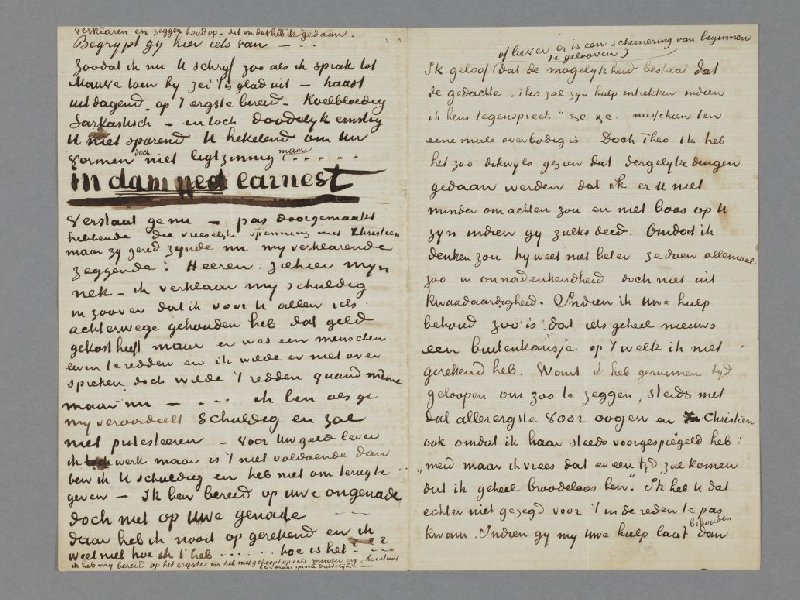 verklaren en zeggen
Begrijpt gij hier iets van – – –
Zoodat ik nu U schrijf zoo als ik sprak tot
Mauve toen hij zei 't is glad uit – haast
uitdagend, op 't ergste bereid – Koelbloedig
Sarkastisch – en toch doodelijk ernstig
U niet sparend U hekelend om Uw
vormen doch niet ligtzinnig maar . . . . . .
in damned earnest
Verstaat ge nu – pas doorgemaakt
hebbende die vreeselijke spanning met Christien
maar gereed zijnde nu mijn verklarende
zeggende: Heeren. Ziehier mijn
nek – ik verklaar mij schuldig
in zoover dat ik voor U allen iets
achterwege gehouden heb dat geld
gekost heeft maar er was een menschen
leven te redden en ik wilde er niet over
spreken, doch wilde 't redden quand même
maar nu – . – . . ik ben als ge
mij veroordeelt Schuldig en zal
niet protesteeren – Voor Uw geld lever
ik werk maar is 't niet voldoende dan
ben ik U schuldig en heb niet om terug te
geven – Ik ben bereid op Uwe ongenade
doch niet op Uwe genade – –
daar heb ik nooit op gerekend en ik
weet niet hoe ik 't heb . . . . . . hoe is het – – –
ik heb mij bereid op het ergste en het
of liever er is een schemering van beginnen
te gelooven)
Ik geloof (dat de mogelijkheid bestaat dat
de gedachte "Theo zal zijn hulp intrekken indien
ik hem tegenspreek" &c &c. misschien ten
eene male overbodig is. Doch Theo ik heb
het zoo dikwijls gezien dat dergelijke dingen
gedaan werden dat ik er U niet
minder om achten zou en niet boos op U
zijn indien gij zulks deed. Omdat ik
denken zou hij weet niet beter ze doen allemaal
zoo in onnadenkendheid doch niet uit
kwaadaardigheid. Indien ik Uwe hulp
behoud zoo is dat iets geheel nieuws
een buitenkansje op 't welk ik niet
gerekend heb. Want ik heb geruimen tijd
geloopen om zoo te zeggen, steeds met
dat allerergste voor oogen en Christien
ook omdat ik haar steeds voorgespiegeld heb:
"meid maar ik vrees dat er een tijd zal komen
dat ik geheel broodeloos ben". Ik heb U dat
echter niet gezegd voor 't in de reden te pas
kwam. Indien gij mij Uwe hulp laat behouden dan